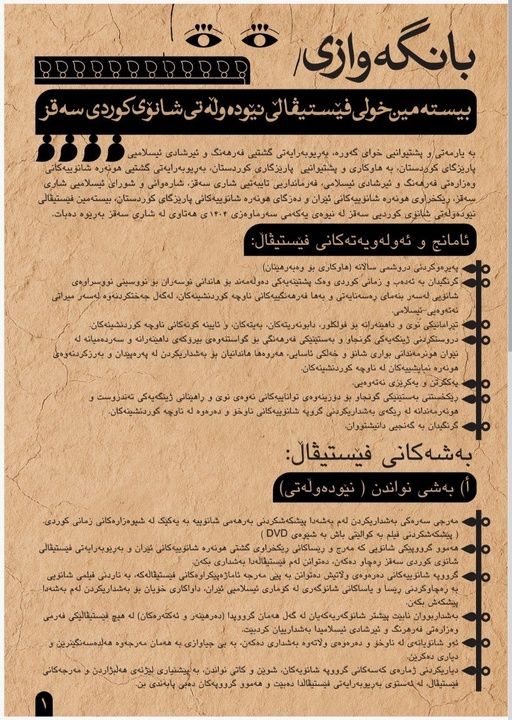 بانگەوازی
بیستەمین خولی فێستیڤاڵی نێودەوڵەتی شانۆی کوردی سەقز
بە یارمەتی و پشتیوانیی خوای گەورە، بەڕێوبەرایەتی گشتیی فەرهەنگ و ئیرشادی ئیسلامیی
پارێزگای کوردستان، بە هاوکاری و پشتیوانیی پارێزگاری کوردستان، بەڕێوبەرایەتی گشتیی هونەرە شانۆییەکانی
وەزارەتی فەرهەنگ و ئیرشادی ئیسلامی، فەرمانداریی تایبەتیی شاری سەقز، شارەوانی و شورای ئیسلامیی شاری
سەقز، ڕێکخراوی هونەرە شانۆییەکانی ئێران و دەزگای هونەرە شانۆییەکانی پارێزگای کوردستان، بیستەمین فێستیڤاڵی
نێودەوڵەتی شانۆی کوردیی سەقز لە نیوەی یەکەمی سەرماوەزی ١٤٠٤ی هەتاوی لە شاری سەقز بەڕێوە دەبات.
ئامانج و ئەولەویەتەکانی فێستیڤاڵ:
پەیڕەوکردنی دروشمی ساڵانە (هاوکاری بۆ وەبەرهێنان)
گرنگیدان بە ئەدەب و زمانی کوردی وەک پشتێنەیەکی دەوڵەمەند بۆ هاندانی نوسەران بۆ نووسینی نووسراوەی
شانۆیی لەسەر بنەمای ڕەسەنایەتی و بەها فەرهەنگییەکانی ناوچە کوردنشینەکان، لەگەڵ جەختکردنەوە لەسەر میراتی
نەتەوەیی-ئیسلامی.
تێڕامانێکی نوێ و داهێنەرانە بۆ فۆلکلۆر، دابونەریتەکان، بەیتەکان، و ئایینە کۆنەکانی ناوچە کوردنشینەکان.
دروستکردنی ژینگەیەکی گونجاو و بەستێنێکی فەرهەنگی بۆ گواستنەوەی بیرۆکەی داهێنەرانە و سەردەمیانە لە
نێوان هونەرمەندانی بواری شانۆ و خەڵکی ئاسایی، هەروەها هاندانیان بۆ بەشداریکردن لە پەرەپێدان و بەرزکردنەوەی
هونەرە نمایشییەکان لە ناوچە کوردنشینەکان.
یەکگرتن و یەکڕیزی نەتەوەیی.
ڕێکخستنی بەستێنێکی گونجاو بۆ دۆزینەوەی تواناییەکانی نەوەی نوێ و ڕاهێنانی ژینگەیەکی تەندروست و
هونەرمەندانە لە ڕێگەی بەشداریکردنی گرووپە شانۆییەکانی ناوخۆ و دەرەوە لە ناوچە کوردنشینەکان.
گرنگیدان بە گەنجیی دانیشتووان.
بەشەکانی فێستیڤاڵ:
أ) بەشی نواندن ( نێودەوڵەتی)
مەرجی سەرەکی بەشداریکردن لەم بەشەدا پێشکەشکردنی بەرهەمی شانۆییە بە یەکێک لە شیوەزارەکانی زمانی کوردی.
( پێشکەشکردنی فیلم بە کوالیتی باش بە شیوەی DVD )
هەموو گرووپێکی شانۆیی کە مەرج و ڕێساکانی ڕێکخراوی گشتی هونەرە شانۆییەکانی ئێران و بەڕێوبەرایەتی فێستیڤاڵی
شانۆی کوردی سەقز ڕەچاو دەکەن، دەتوانن لەم فێستیڤاڵەدا بەشداری بکەن.
گرووپە شانۆییەکانی دەرەوەی وڵاتیش دەتوانن بە پێی مەرجە ئاماژەپێکراوەکانی فێستیڤاڵەکە، بە ناردنی فیلمی شانۆیی
بە ڕەچاوکردنی ڕێسا و یاساکانی شانۆگەری لە کۆماری ئیسلامیی ئێران، داواکاری خۆیان بۆ بەشداریکردن لەم بەشەدا
پێشکەش بکەن.
بەشداربووان نابێت پێشتر شانۆگەریەکەیان لە گەڵ هەمان گرووپدا (دەرهێنەر و ئەکتەرەکان) لە هیچ فێستیڤاڵێکی فەرمی
وەزارەتی فەرهەنگ و ئیرشادی ئیسلامیدا بەشدارییان کردبێت.
ئەو شانۆیانەی لە ناوخۆ و دەرەوەی وڵاتەوە بەشداری دەکەن، بە بێ جیاوازی بە هەمان مەرجەوە هەڵدەسەنگێنرێن و
دیاری دەکرێن.
دیاریکردنی ژمارەی کەسەکانی گرووپە شانۆیەکان، شوێن و کاتی نواندن، بە پێشنیاری لیژنەی هەڵبژاردن و مەرجەکانی
فێستیڤاڵ، لە ئەستۆی بەڕێوبەرایەتی فێستیڤاڵدا دەبێت و هەموو گرووپەکان دەبێ پابەندی بن.
١